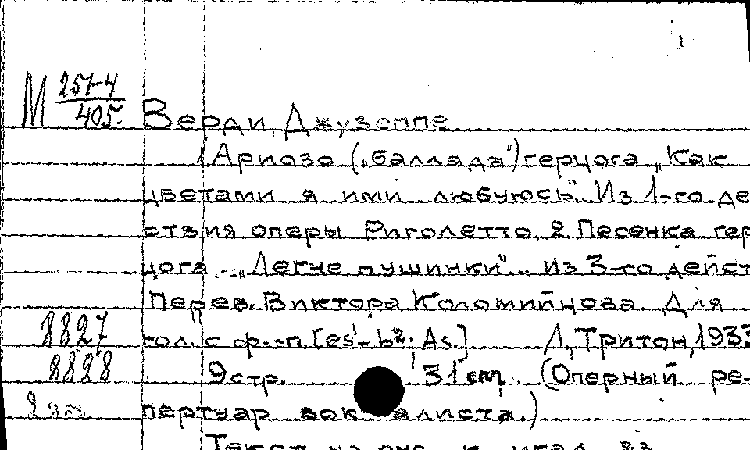 М 257-4
405.
Верди, Джузеппе
1 Ариозо („баллада") герцога „Как
цветами я ими любуюсь". Из 1-го де
ствия оперы Риголетто. 2. Песенка гер
цога „Легче пушинки".. из 3-го дейст
Перев. Виктора Коломийцова. Для
8827 гол. с ф.-п. [es'-b²; As.] Л., Тритон, 1933
8828 9 стр. 31 cm. (Оперный ре-
2 эк. пертуар вокалиста.)
Текст на рус. и итал. яз.